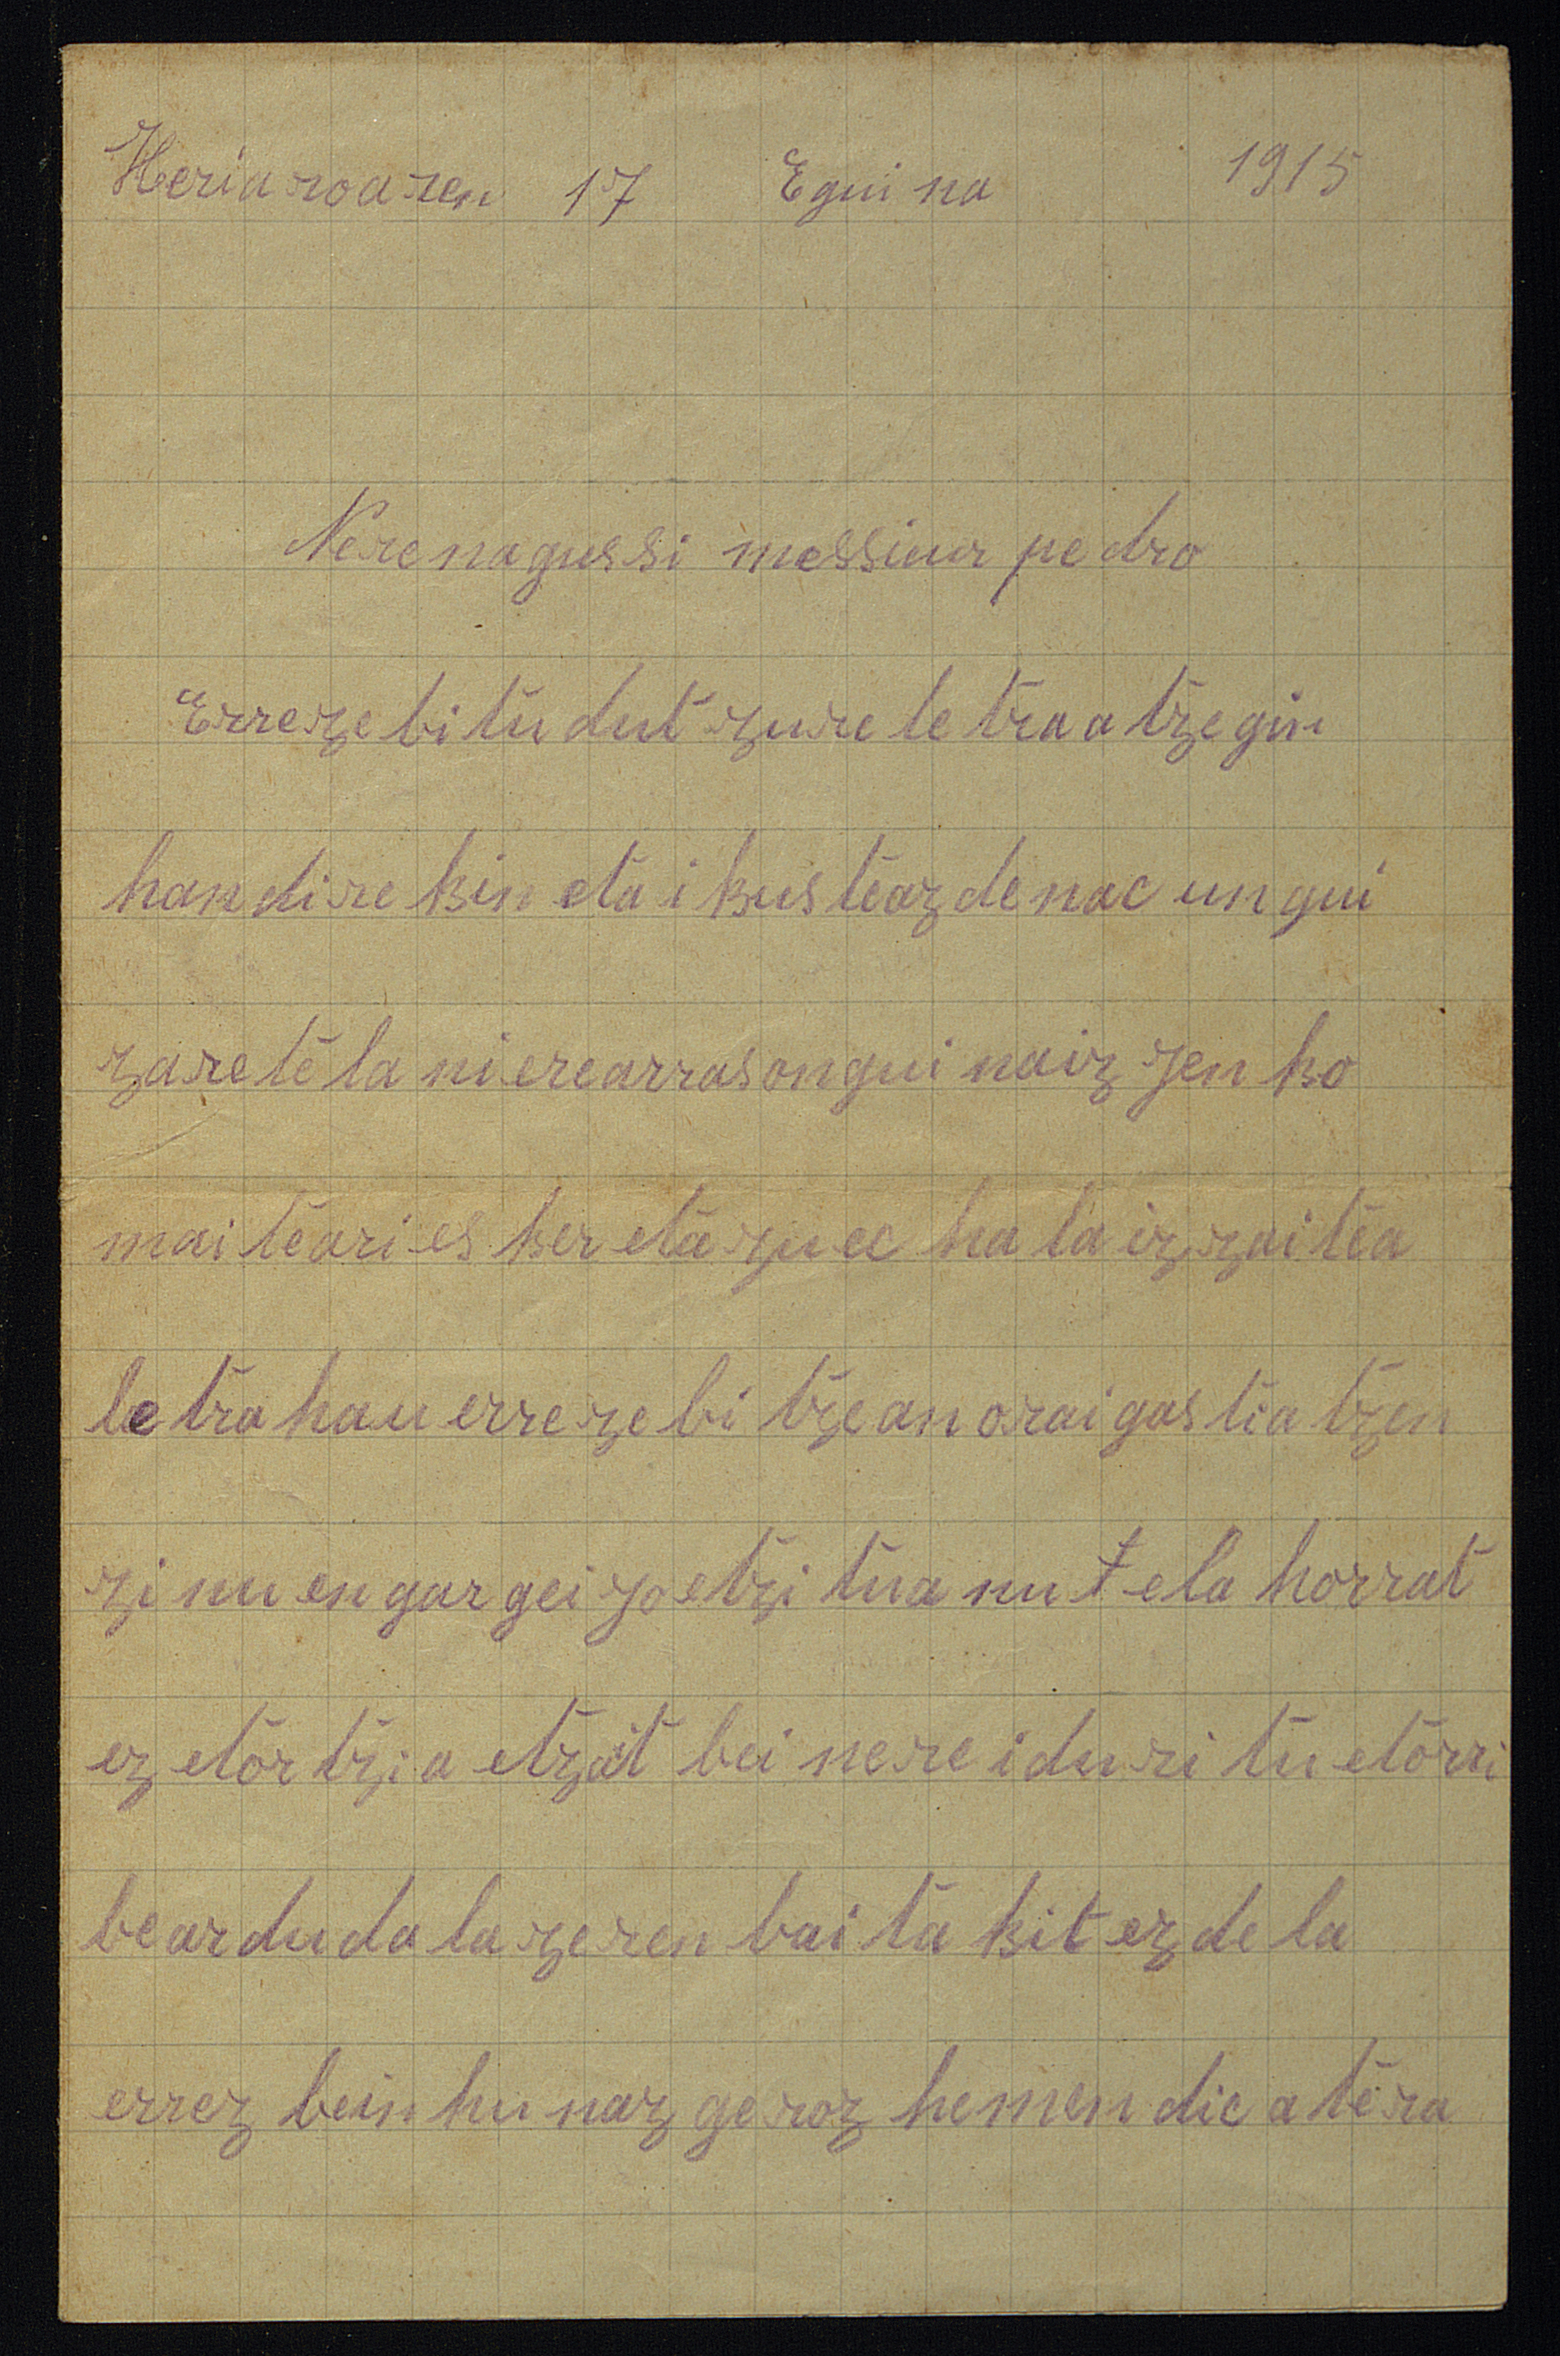 Heriaroaren 17 Eguina 1915
Nere nagussi messiur pedro
Errezebitu dut zure letra atzegin
handirekin eta ikusteaz denac ungui
zaretela ni ere arras ongui naiz jenko
maiteari esker eta zuec hala izzaitea
letra hau errezebitzean orai gastiatzen
zinuen gargeizoetzitua nutela horrat
ez etortzia etzait bei nere iduritu etorri
bear dudala zeren baitakit ez dela
errez bein hunaz geroz hemendic atera